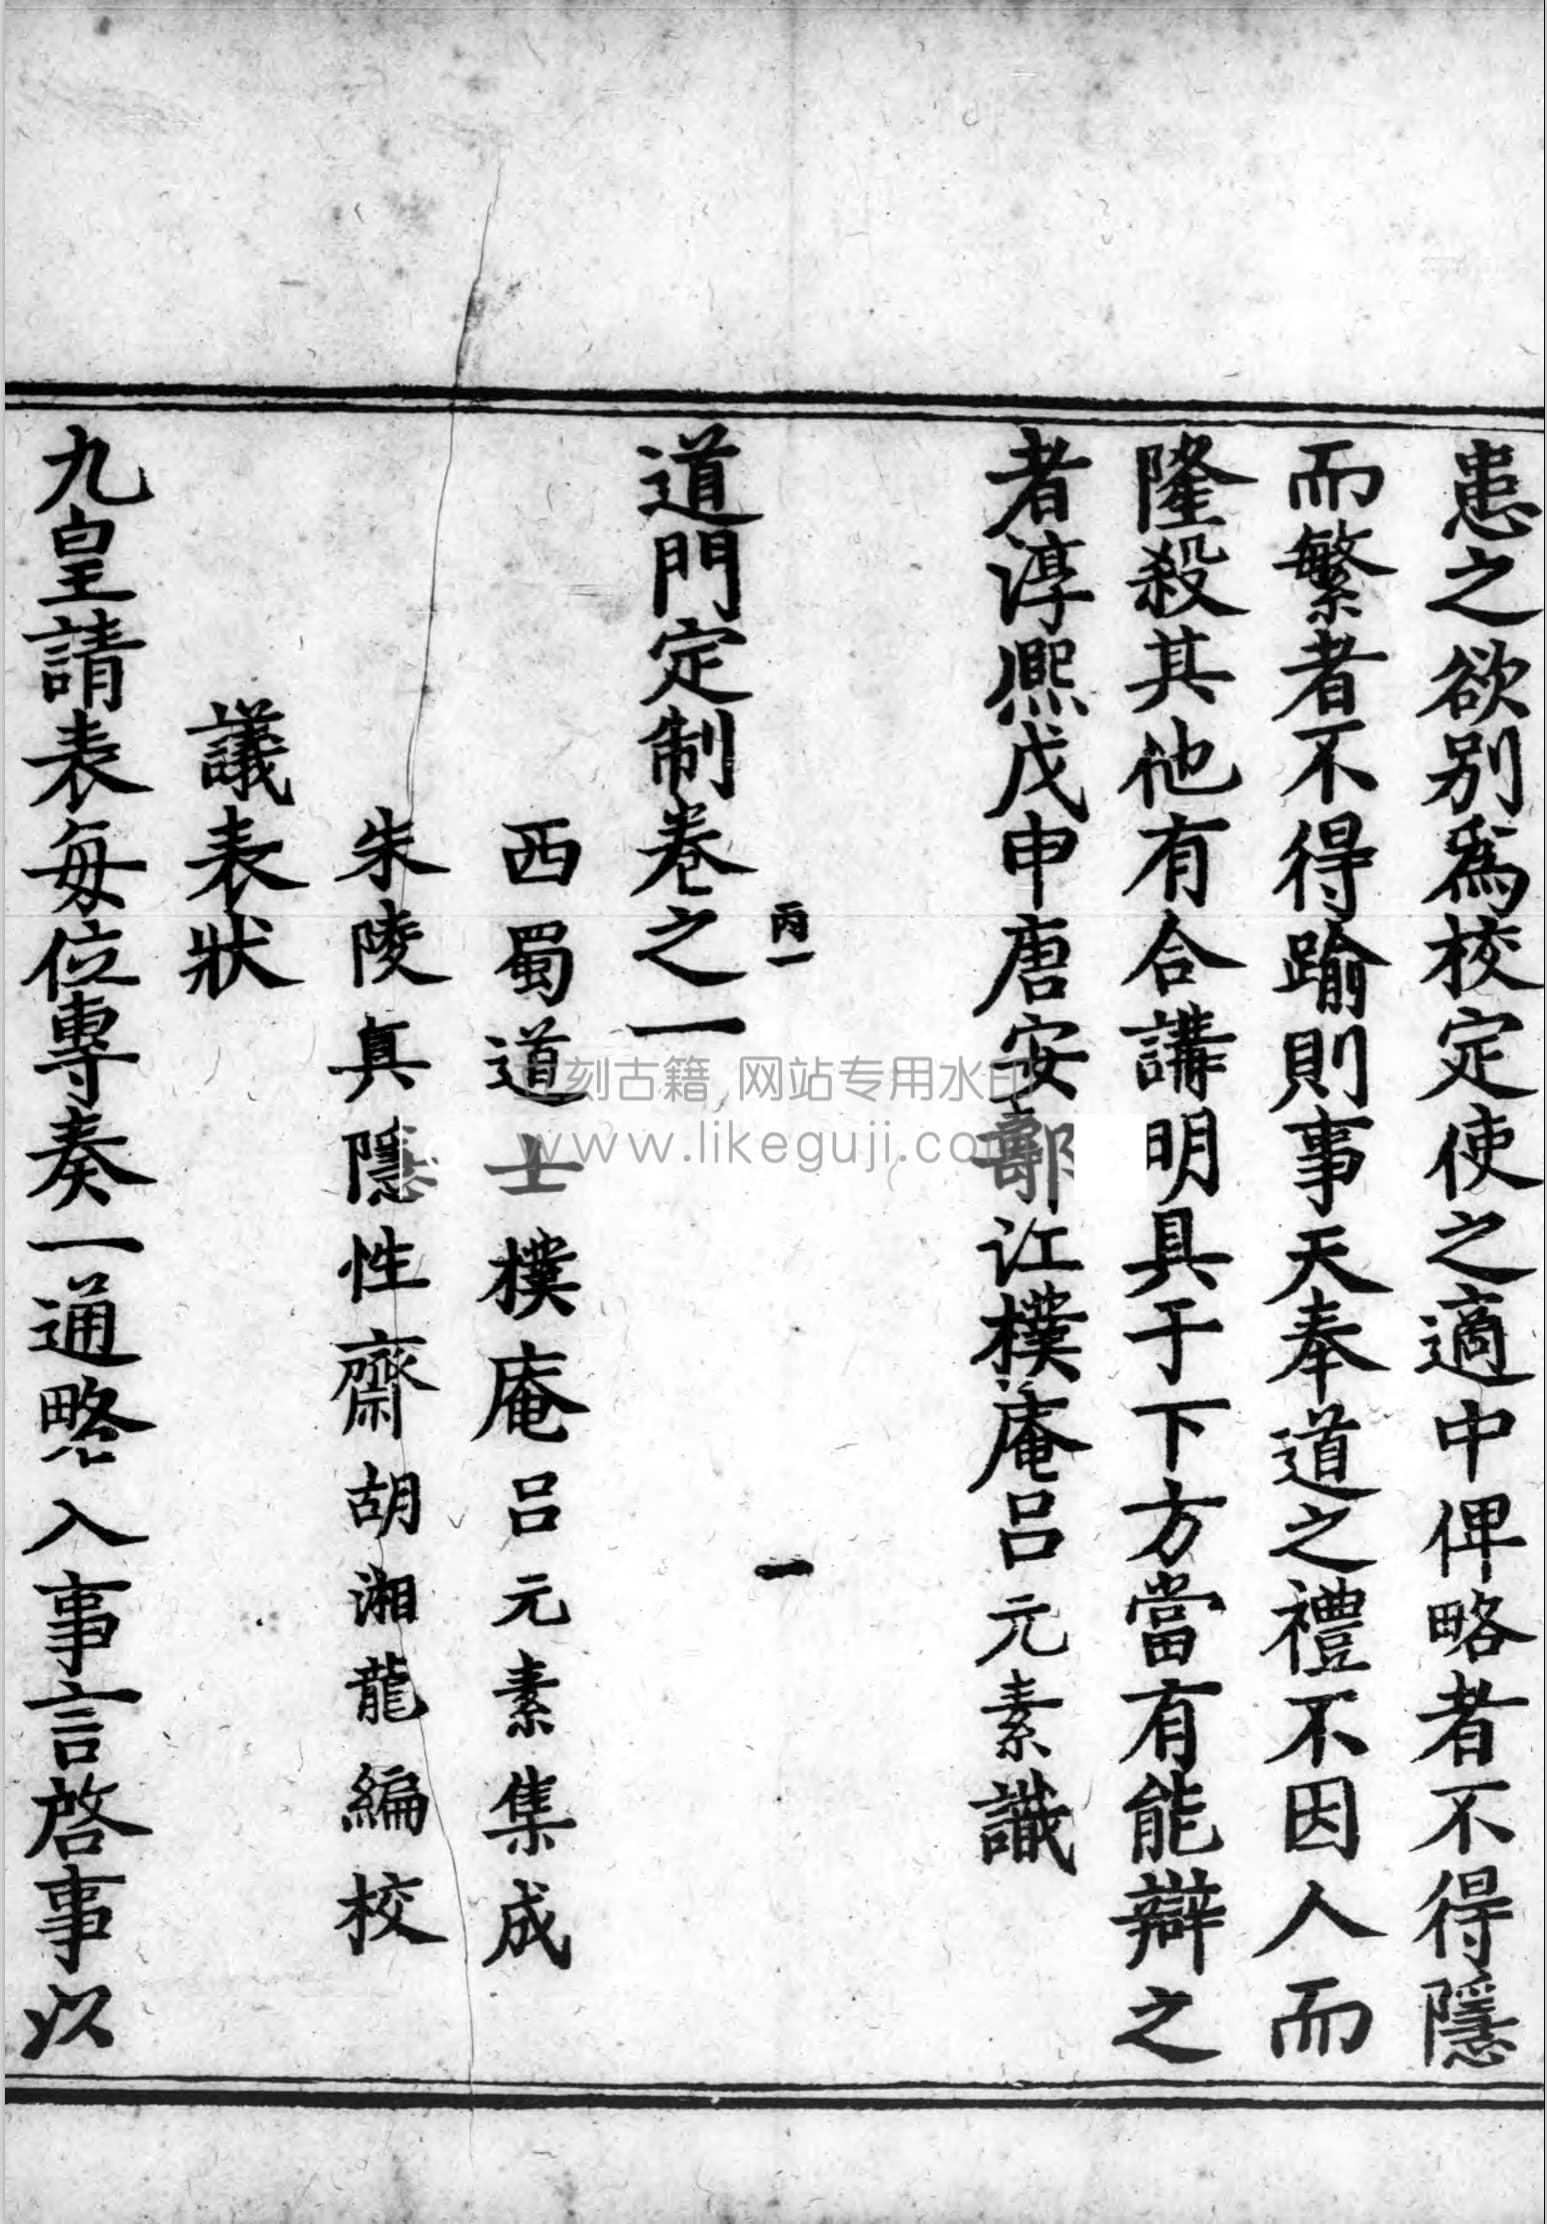 患之欲別爲校定使之適中俾略者不得隱
而繁者不得踰則事天奉道之禮不因人而
隆殺其他有合講明具于下方當有能辯之
者淳熈戊申唐安鄣江樸庵呂元素識
丙一
一
道門定制卷之一
西蜀道士樸庵呂元素集成
朱陵真隱性齋胡湘龍編校
議表狀
九皇請表每位專奏一通略入事言啓事以
刻古籍 网站专用水印
www.likeguji.com